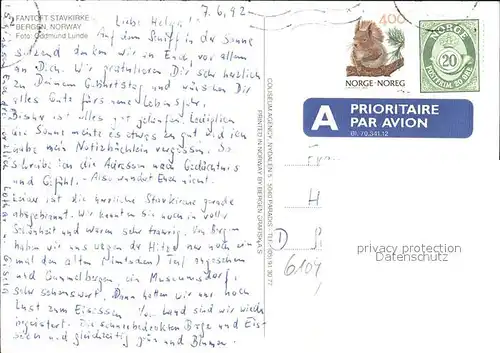 FANTOFT STAVKIRKE
BERGEN, NORWAY
Foto: Oddmund Lunde
7.6.92
Liebe Helga!
Auf dem Schiff in der Sonne
sitzend denken wir in Ende, vor allem
an Dich. Wir gratulieren Dir sehr herzlich
zu Deinem Geburtstag und wünschen Dir
alles Gute fürs neue Lebensjahr.
Bisher ist alles gut gelaufen. Lediglich
die Sonne meinte es etwas zu gut und ich
habe mein Notizbüchlein vergessen. So
schreibe ich die Adressen nach Gedächtnis
und Gefühl. - Also wundert Euch nicht.
Leider ist die herrliche Stavkirche gerade
abgebrannt. Wir konnten sie noch in voller
Schönheit und waren sehr traurig. In Bergen
haben wir uns wegen der Hitze nur noch ein
mal den alten Teil angesehen
und Gammelbergen, ein Museumsdorf,
sehr sehenswert. Dann hatten wir nur noch
Lust zum Eisessen. Vom Land sind wir wieder
begeistert. Die schneebedeckten Berge und Eis-
und gleichzeitig grün und Blumen.
Lothar Gisela
COLISEUM AGENCY, NYDALEN 5 5050 PARADIS - TEL. (05) 91 30 77
PRINTED IN NORWAY BY BERGEN GRAFISK A.S
400
NORGE·NOREG
NORGE
20
POSTFRIM 20 ØRE
A PRIORITAIRE
PAR AVION
Bl. 70.341.12
H
D
6104
privacy protection
Datenschutz